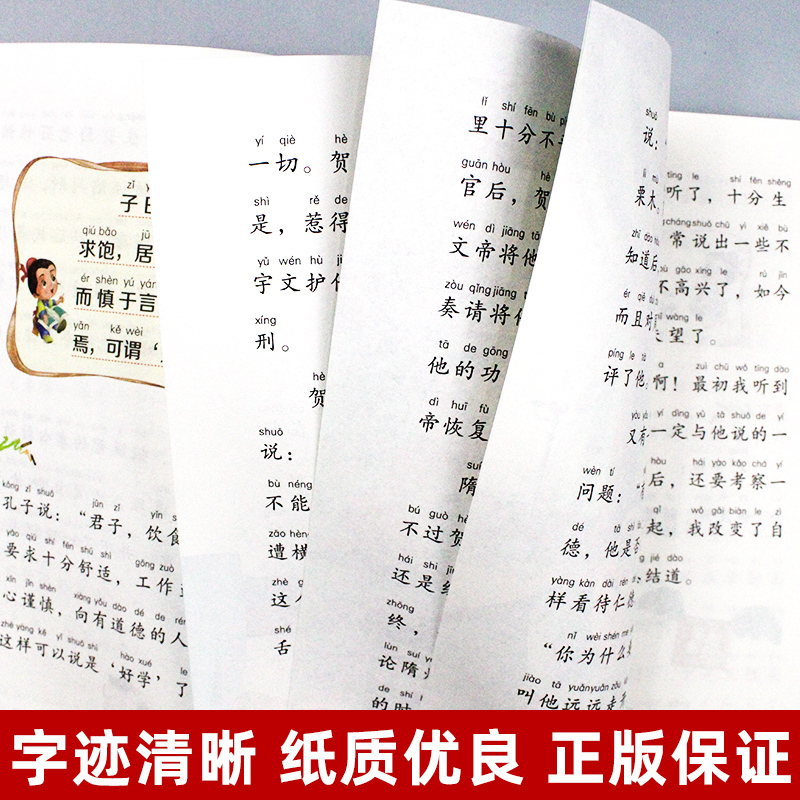 zǐ y
子曰
qiú bǎo jū
求饱，居
ér shèn yú yán
而慎于言
yān kě wèi
焉，可谓‘
kǒng zǐ shuō jūn zǐ yǐn s
孔子说：“君子，饮食
yāo qiú shí fēn shū shì gōng zuò
要求十分舒适，工作
xīn jǐn shèn xiàng yǒu dào dé de rén
心谨慎，向有道德的人
zhè yàng kě yǐ shuō shì hào xué le
这样可以说是‘好学’了
yí qiè hè
一切。贺
shì rě de
是，惹得
yǔ wén hù jiāng
宇文护
xíng
刑。
hè
贺
shuō
说：
bù néng
不能
zāo hèng
遭横
zhè g
这个
shé
舌
lǐ shí fēn bù píng
里十分不平
guān hòu hè
官后，贺
wén dì jiāng tā
文帝将他
zòu qǐng jiāng
奏请将
tā de gōng
他的功
dì huī fù
帝恢复
suí
隋
bú guò hè
不过贺
hái shì
还是
zhōng
终，
lùn suí
论隋
de shí
的时
shuō
说：
lì mù
栗木
zhī dào hòu
知道后
ér qiě duì
而且对
píng le tā
评了他
yòu yǒu
又有
wèn tí
问题：“
dé tā shì
德，他是否
yàng kàn dài rén dé
样看待仁德
nǐ wèi shén me
“你为什么
jiào tā yuǎn yuǎn zǒu
叫他远远走
tīng le shí fēn shēng
听了，十分生
cháng shuō chū yì xiē bù
常说出一些不
bù gāo xìng le rú jīn
不高兴了，如今
shī wàng le
失望了。
a zuì chū wǒ tīng dào
啊！最初我听到
yí dìng yǔ tā shuō de yí
一定与他说的一
hòu hái yào kǎo chá yí
后，还要考察一
qǐ wǒ gǎi biàn le zì
起，我改变了自
jié dào
结道。
字迹清晰 纸质优良 正版保证